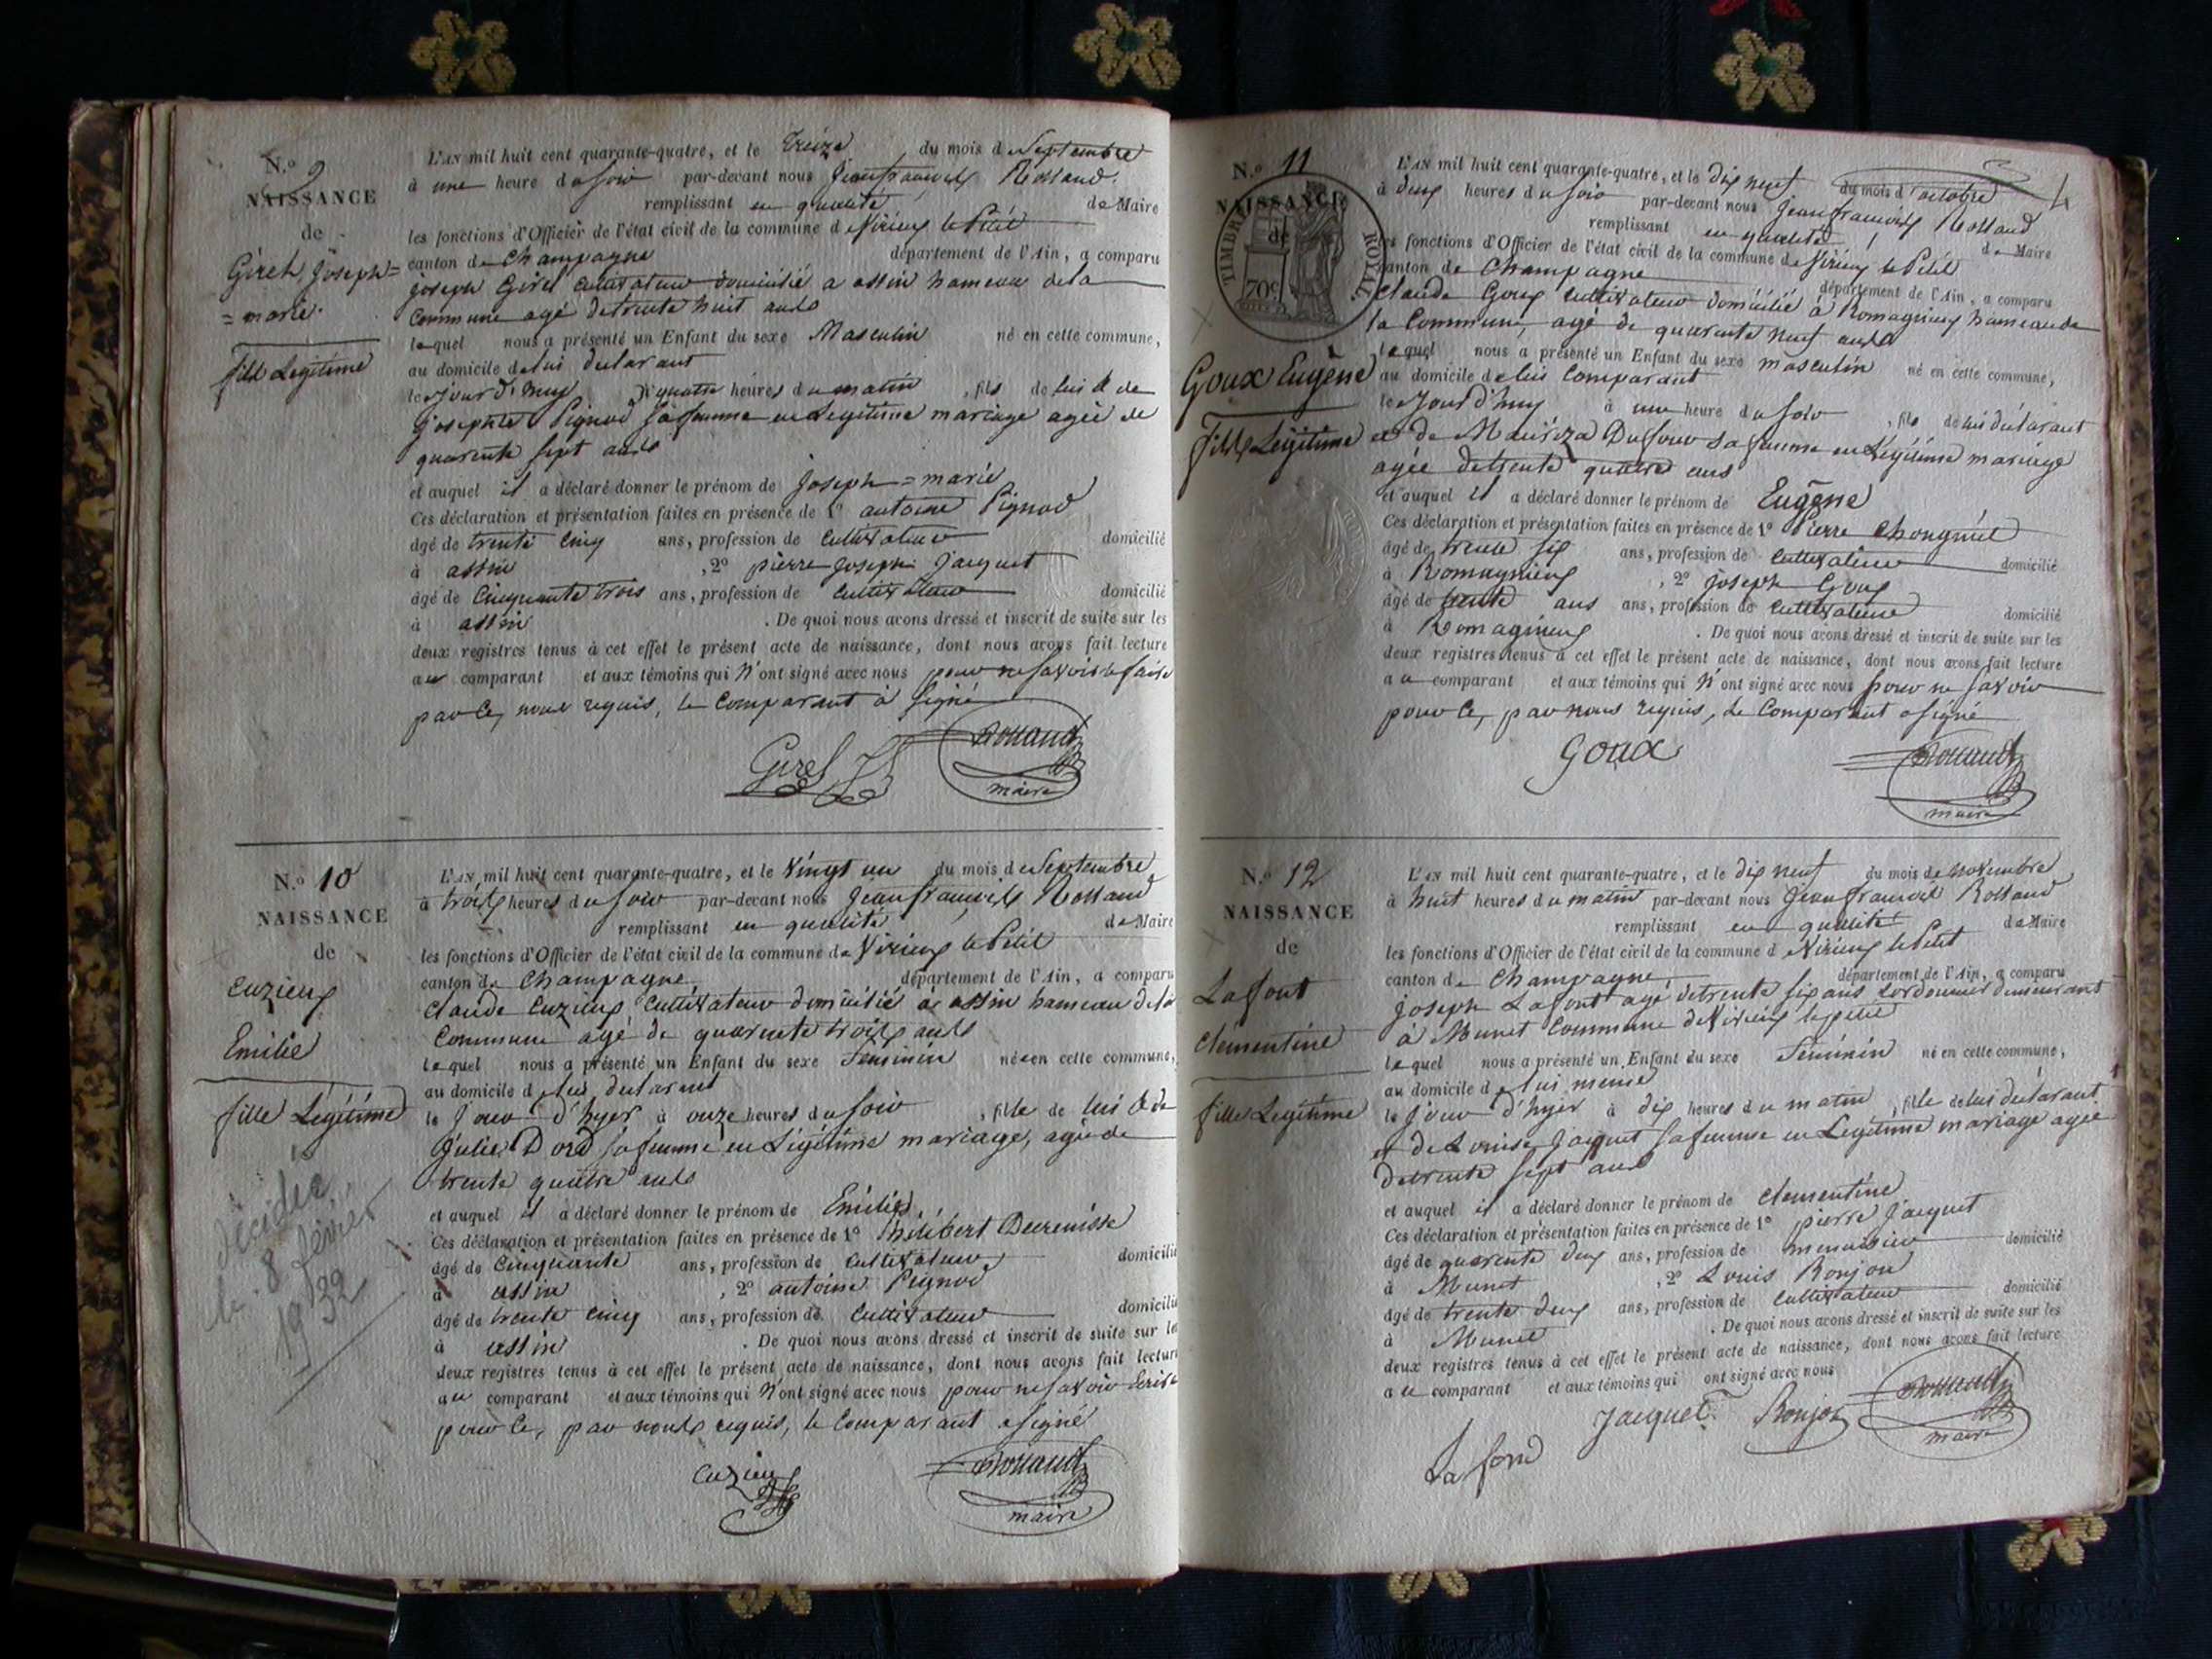 N.° 9
NAISSANCE
de
Girel, Joseph=
=marie.
fils Legitime
L'AN mil huit cent quarante-quatre, et le treize du mois de Septembre
à une heure du soir par-devant nous Jean françois Rolland
remplissant en qualité de Maire
les fonctions d'Officier de l'état civil de la commune de Virieux le Petit
canton de Champagne département de l'Ain, a comparu
joseph Girel cultivateur domicilié a assin hameau de la
Commune agé de trente huit ans
lequel nous a présenté un Enfant du sexe Masculin né en cette commune,
au domicile de lui declarant
le jour d'huy à quatre heures du matin, fils de lui & de
josephte Pignod sa femme en Legitime mariage agée de
quarente sept ans
et auquel il a déclaré donner le prénom de joseph=marie
Ces déclaration et présentation faites en présence de 1° antoine Pignod
âgé de trente cinq ans, profession de cultivateur domicilié
à assin, 2° pierre joseph jacquet
âgé de cinquante trois ans, profession de cultivateur domicilié
à assin. De quoi nous avons dressé et inscrit de suite sur les
deux registres tenus à cet effet le présent acte de naissance, dont nous avons fait lecture
au comparant et aux témoins qui n'ont signé avec nous pour ne savoir le faire
par ce, nous requis, le comparant à signé
Girel Rolland
maire
N.° 10
NAISSANCE
de
Cuzieux
Emilie
fille Legitime
décédée
le 8 février
1932
L'AN mil huit cent quarante-quatre, et le vingt un du mois de Septembre
à trois heures du soir par-devant nous Jean françois Rolland
remplissant en qualité de Maire
les fonctions d'Officier de l'état civil de la commune de Virieux le Petit
canton de Champagne département de l'Ain, a comparu
Claude Cuzieux cultivateur domicilié a assin hameau de la
Commune agé de quarente trois ans
lequel nous a présenté un Enfant du sexe Feminin née en cette commune,
au domicile de lui declarant
le jour d'hyer à onze heures du soir, fille de lui & de
Julie Dord sa femme en Légitime mariage, agée de
trente quatre ans
et auquel il a déclaré donner le prénom de Emilie
Ces déclaration et présentation faites en présence de 1° Philibert Decrenisse
âgé de cinquante ans, profession de cultivateur domicilié
à assin, 2° antoine Pignod
âgé de trente cinq ans, profession de cultivateur domicilié
à assin. De quoi nous avons dressé et inscrit de suite sur les
deux registres tenus à cet effet le présent acte de naissance, dont nous avons fait lecture
au comparant et aux témoins qui n'ont signé avec nous pour ne savoir Ecrire
pour ce, par nous requis, le comparant a signé
Cuzieux Rolland
maire
N.° 11
NAISSANCE
de
TIMBRE ROYAL
70c
Goux Eugène
fils Légitime
L'AN mil huit cent quarante-quatre, et le dix neuf du mois d'octobre
à deux heures du soir par-devant nous Jean françois Rolland
remplissant en qualité de Maire
les fonctions d'Officier de l'état civil de la commune de Virieux le Petit
canton de Champagne département de l'Ain, a comparu
Claude Goux cultivateur domicilié à Romagnieux hameau de
la Commune, agé de quarente neuf ans
lequel nous a présenté un Enfant du sexe masculin né en cette commune,
au domicile de lui comparant
le jour d'huy à une heure du soir, fils de lui declarant
et de Mauriza Dufour sa femme en Légitime mariage
agée de trente quatre ans
et auquel il a déclaré donner le prénom de Eugène
Ces déclaration et présentation faites en présence de 1° Pierre
âgé de trente six ans, profession de cultivateur domicilié
à Romagnieux, 2° joseph Goux
âgé de trente ans ans, profession de cultivateur domicilié
à Romagnieux. De quoi nous avons dressé et inscrit de suite sur les
deux registres tenus à cet effet le présent acte de naissance, dont nous avons fait lecture
au comparant et aux témoins qui n'ont signé avec nous pour ne savoir
pour ce, par nous requis, le comparant a signé
Goux Rolland
maire
N.° 12
NAISSANCE
de
Lafont
Clementine
fille Legitime
L'AN mil huit cent quarante-quatre, et le dix neuf du mois de novembre
à huit heures du matin par-devant nous Jean françois Rolland
remplissant en qualité de Maire
les fonctions d'Officier de l'état civil de la commune de Virieux le Petit
canton de Champagne département de l'Ain, a comparu
joseph Lafont agé de trente six ans cordonnier demeurant
à Munet Commune de Virieux le petit
lequel nous a présenté un Enfant du sexe Féminin né en cette commune,
au domicile de lui meme
le jour d'hyer à dix heures du matin, fille de lui declarant
et de Louise jacquet sa femme en Legitime mariage agée
de trente sept ans
et auquel il a déclaré donner le prénom de Clementine
Ces déclaration et présentation faites en présence de 1° pierre jacquet
âgé de quarente deux ans, profession de menuisier domicilié
à Munet, 2° Louis Ronjon
âgé de trente deux ans, profession de cultivateur domicilié
à Munet. De quoi nous avons dressé et inscrit de suite sur les
deux registres tenus à cet effet le présent acte de naissance, dont nous avons fait lecture
au comparant et aux témoins qui ont signé avec nous
Lafond Jacquet Ronjon Rolland
maire